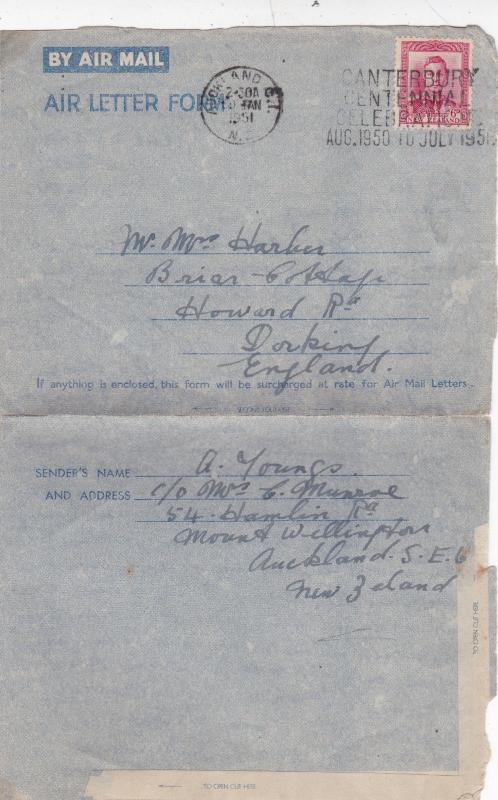 BY AIR MAIL
AIR LETTER FOR
AUCKLAND C.1.
2-30A
JAN
1951
N.Z.
CANTERBURY
CENTENNIAL
CELEB
AUG. 1950 TO JULY 1951.
Mr. Mrs Harber
Briar-Cottage
Howard Rd
Dorking
England.
If anything is enclosed, this form will be surcharged at rate for Air Mail Letters.
SECOND FOLD HERE
SENDER'S NAME A. Youngs.
AND ADDRESS c/o Mrs C. Munroe
54. Hamlin Rd
Mount Wellington
Auckland. S.E.6
New Zeland
TO OPEN CUT HERE
TO OPEN CUT HERE